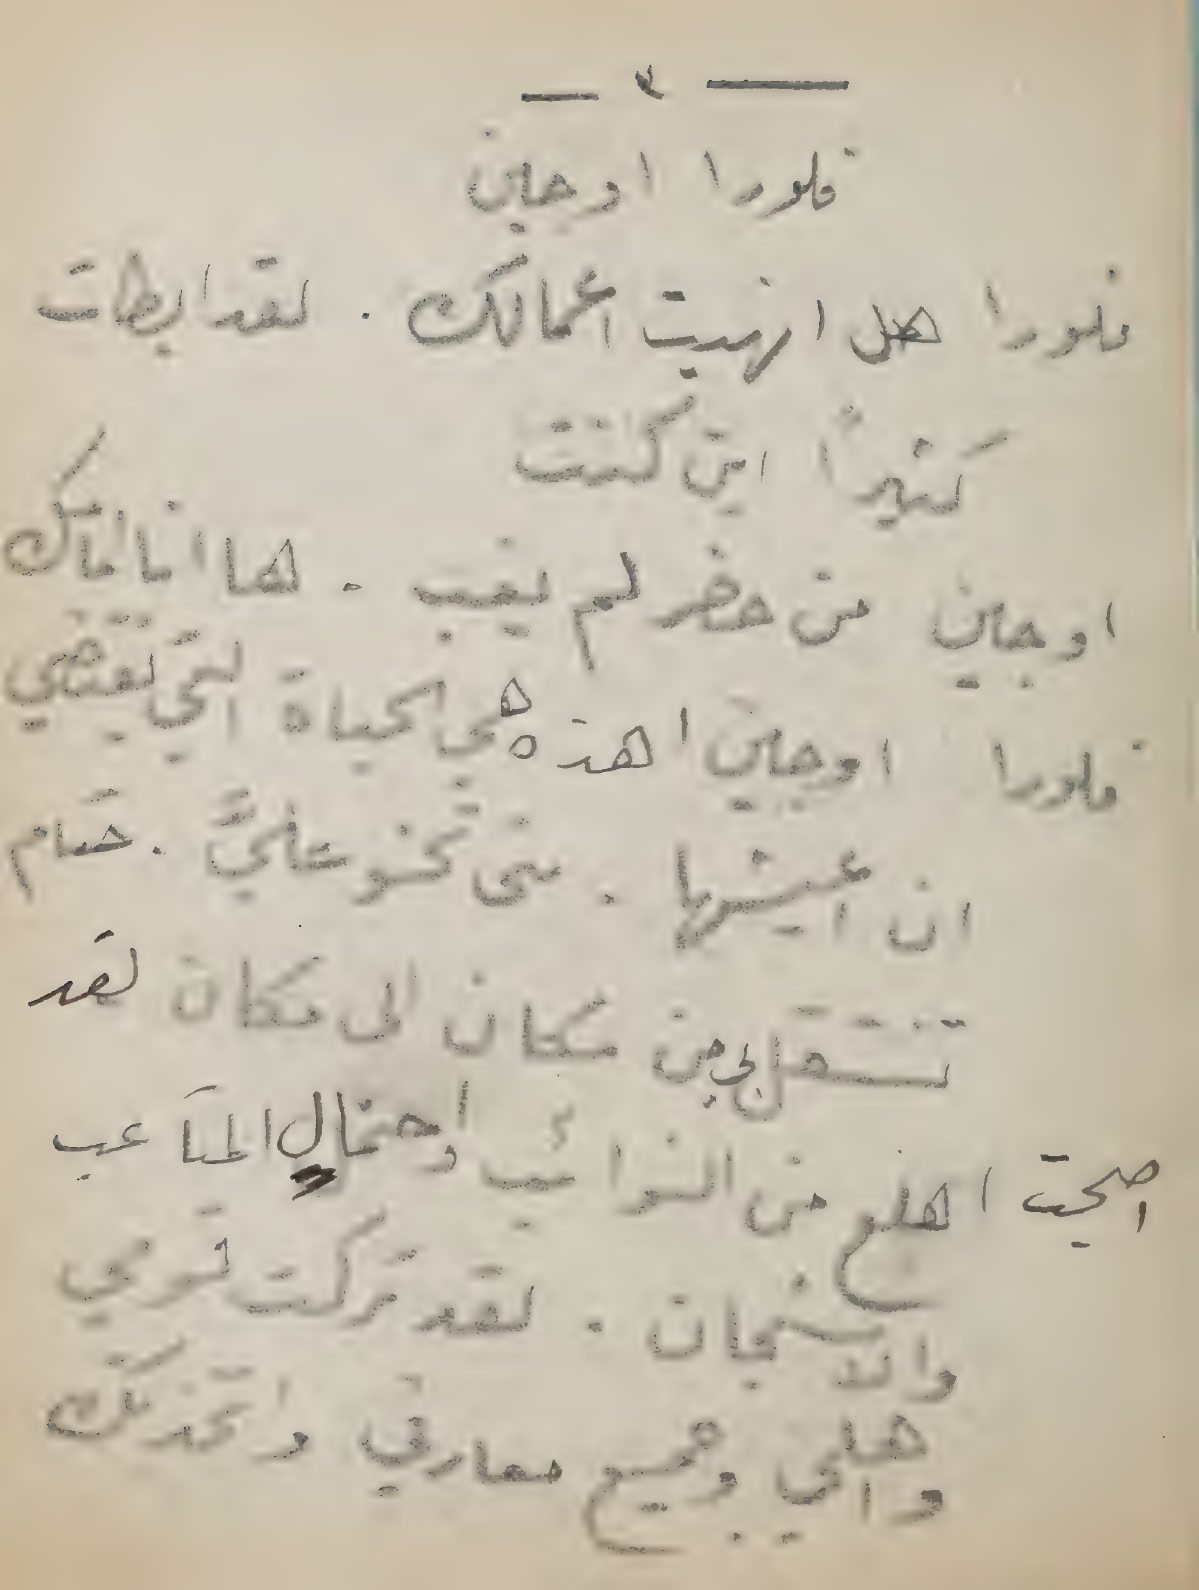 — ٢ —
فلورا اوجين
فلورا هل انهيت اعمالك . لقد ابطات
كثيراً اين كنت
اوجين من حضر لم يغب . ها انا امامك
فلورا اوجين اهذه هي الحياة التي تقتضي
ان اعيشها . متى تحنو عليَّ . حتام
تنتقل بي من مكان الى مكان لقد
اصبحت اهلع من النوائب واحتمال المتاعب
والاشجان . لقد تركت قومي
واهلي وجميع معارفي واتخذتك